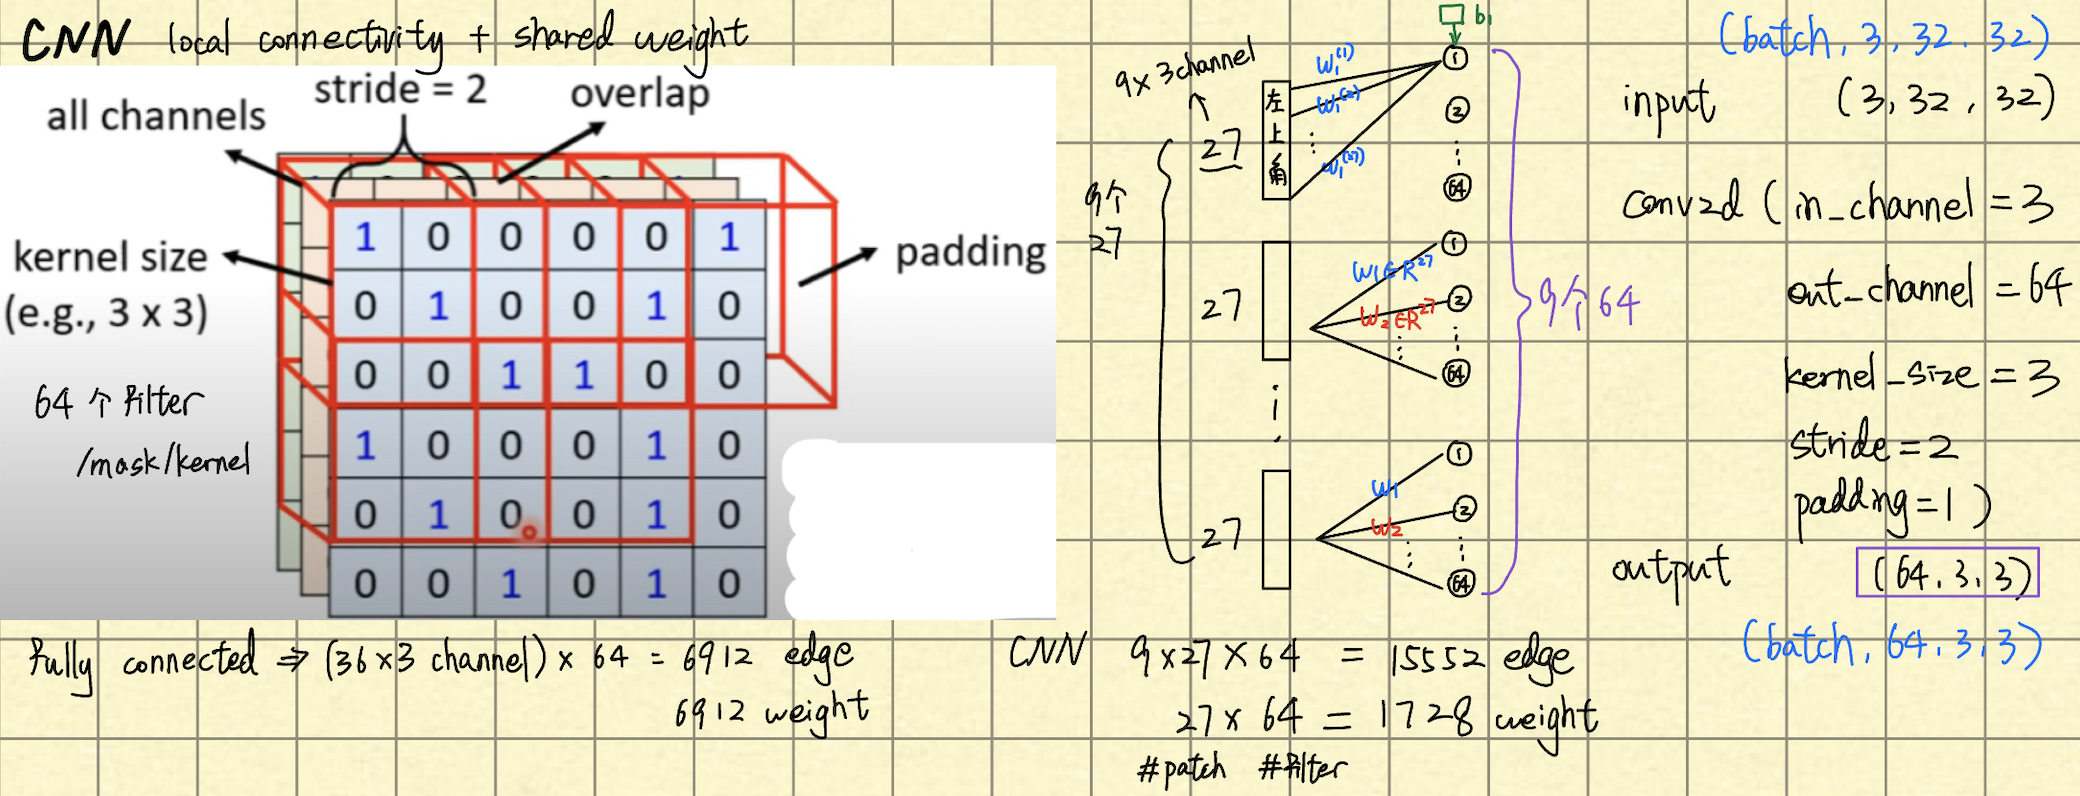 CNN local connectivity + shared weight
all channels
stride = 2
overlap
kernel size
(e.g., 3 x 3)
padding
64 个 filter
/mask/kernel
1 0 0 0 0 1
0 1 0 0 1 0
0 0 1 1 0 0
1 0 0 0 1 0
0 1 0 0 1 0
0 0 1 0 1 0
Fully connected ⇒ (36×3 channel) × 64 = 6912 edge
6912 weight
9×3channel
9个
27
27
左上角
W₁⁽¹⁾
W₁⁽²⁾
⋮
W₁⁽²⁷⁾
b₁
①
②
⋮
64
27
W₁∈R²⁷
W₂∈R²⁷
⋮
①
②
⋮
64
27
W₁
W₂
⋮
①
②
⋮
64
9个64
CNN 9×27×64 = 15552 edge
27×64 = 1728 weight
#patch #filter
(batch, 3, 32, 32)
input (3, 32, 32)
conv2d (in_channel = 3
out_channel = 64
kernel_size = 3
stride = 2
padding = 1 )
output (64, 3, 3)
(batch, 64, 3, 3)